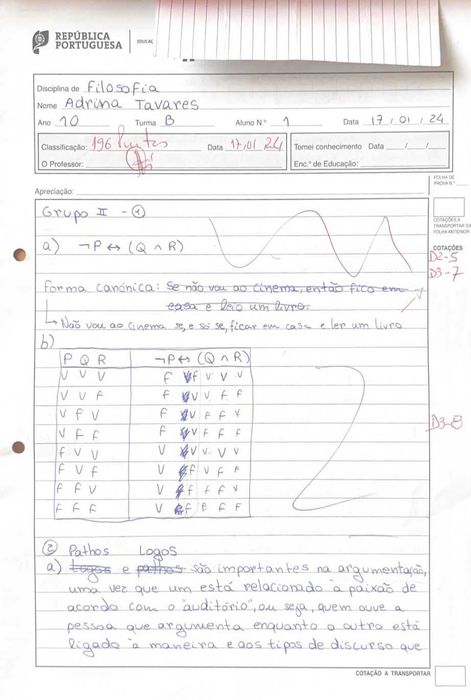 REPÚBLICA
PORTUGUESA
EDUCAÇ
Disciplina de Filosofia
Nome Adrina Tavares
Ano 10 Turma B Aluno N.º 1 Data 17/01/24
Classificação: 196 Pontos Data 17/01/24 Tomei conhecimento Data / /
O Professor: Enc.º de Educação:
FOLHA DE
PROVA N.º
Apreciação:
COTAÇÕES A
TRANSPORTAR DA
FOLHA ANTERIOR
COTAÇÕES
Grupo II - ①
a) ¬P ↔ (Q ∧ R)
D2-5
D3-7
Forma canónica: Se não vou ao cinema, então fico em
casa e leio um livro.
↳ Não vou ao cinema se, e só se, ficar em casa e ler um livro
b)
P Q R ¬P ↔ (Q ∧ R)
V V V F f V V V
V V F F V V F F
V F V F V F F V
V F F F V F F F
F V V V V V V V
F V F V f V F F
F F V V f F F V
F F F V f F F F
D3-8
② Pathos Logos
a) Logos e pathos são importantes na argumentação,
uma vez que um está relacionado à paixão de
acordo com o "auditório", ou seja, quem ouve a
pessoa que argumenta enquanto o outro está
ligado à maneira e aos tipos de discurso que
COTAÇÃO A TRANSPORTAR